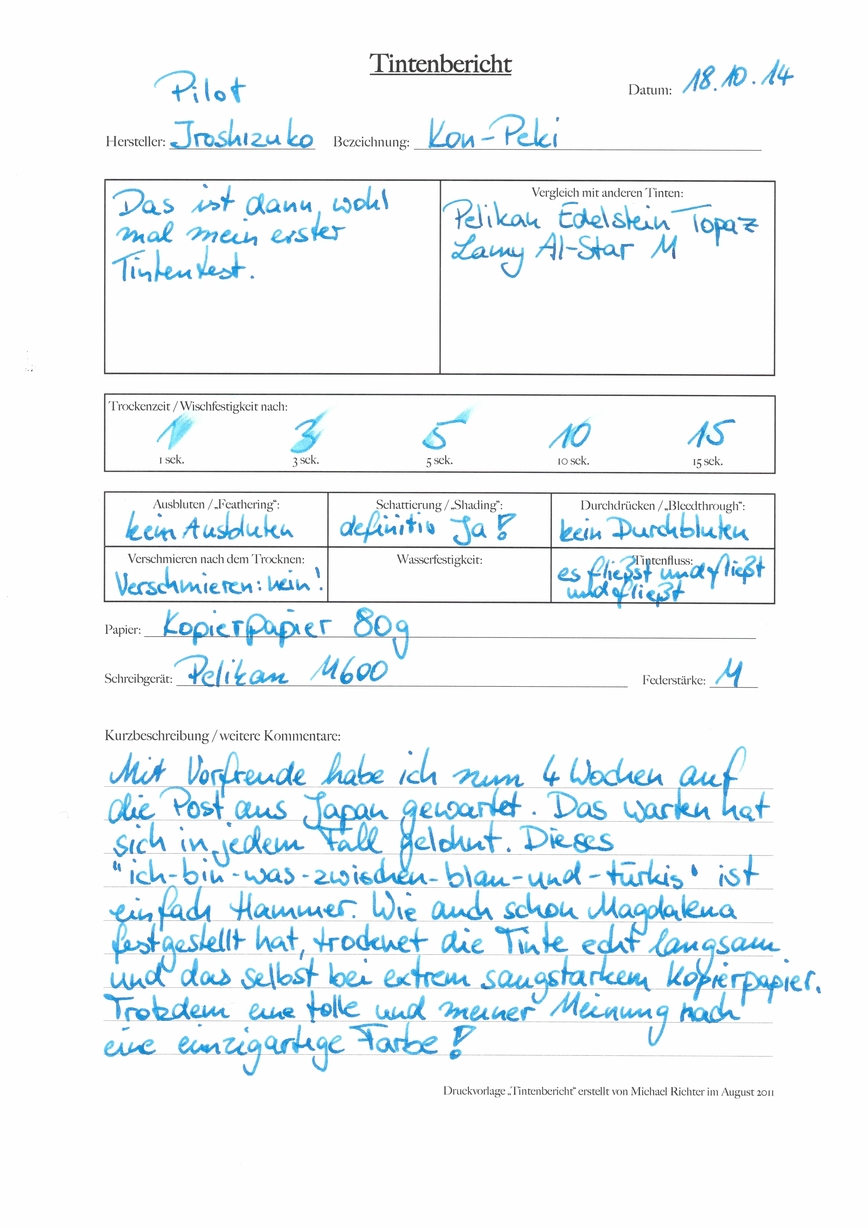 Tintenbericht
Pilot
Datum: 18.10.14
Hersteller: Iroshizuko Bezeichnung: Kon-Peki
Das ist dann wohl
mal mein erster
Tintentest.
Vergleich mit anderen Tinten:
Pelikan Edelstein Topaz
Lamy Al-Star M
Trockenzeit / Wischfestigkeit nach:
1 3 5 10 15
1 sek. 3 sek. 5 sek. 10 sek. 15 sek.
Ausbluten / „Feathering“: Schattierung / „Shading“: Durchdrücken / „Bleedthrough“:
kein Ausbluten definitiv Ja! kein Durchbluten
Verschmieren nach dem Trocknen: Wasserfestigkeit: Tintenfluss:
Verschmieren: nein! es fließt und fließt
und fließt
Papier: Kopierpapier 80g
Schreibgerät: Pelikan M600 Federstärke: M
Kurzbeschreibung / weitere Kommentare:
Mit Vorfreude habe ich nun 4 Wochen auf
die Post aus Japan gewartet. Das warten hat
sich in jedem Fall gelohnt. Dieses
"ich-bin-was-zwischen-blau-und-türkis" ist
einfach Hammer. Wie auch schon Magdalena
festgestellt hat, trocknet die Tinte echt langsam
und das selbst bei extrem saugstarkem Kopierpapier.
Trotzdem eine tolle und meiner Meinung nach
eine einzigartige Farbe!
Druckvorlage „Tintenbericht“ erstellt von Michael Richter im August 2011